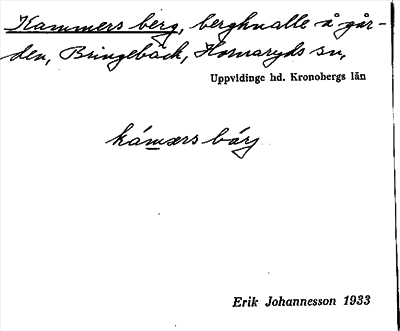 Kammers berg, bergknalle å går-
den, Bringebäck, Hornaryds sn,
Uppvidinge hd. Kronobergs län
kámərs bárj
Erik Johannesson 1933